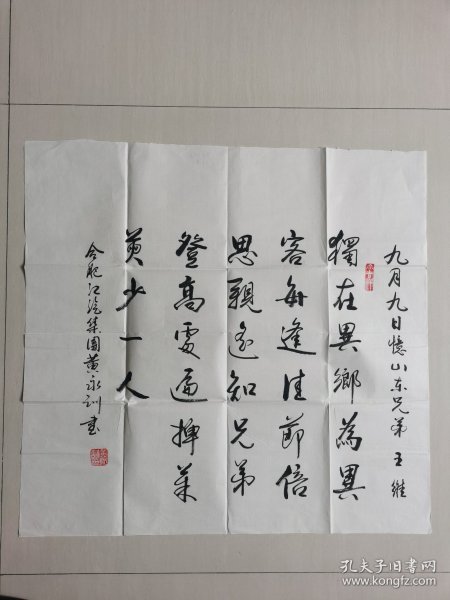 九月九日憶山东兄弟 王維
獨在異鄉為異
客每逢佳節倍
思親遙知兄弟
登高處遍插茱
萸少一人
合肥江汽集團黄永訓書
孔夫子旧书网
www.kongfz.com